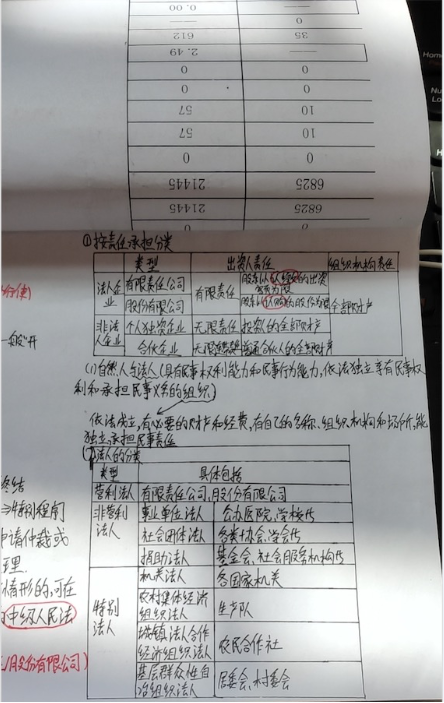 0.00
—
612
35
2.49
—
0
0
0
0
57
10
57
10
0
0
21445
6825
21445
6825
0
①按责任承担分类
类型 出资人责任 组织机构责任
法人企业 有限责任公司 有限责任 股东以认缴的出资额为限 全部财产
股份有限公司 股东以认购的股份为限
非法人企业 个人独资企业 无限责任 投资人的全部财产
合伙企业 无限连带 普通合伙人的全部财产
(1)自然人与法人(具有民事权利能力和民事行为能力,依法独立享有民事权
利和承担民事义务的组织)
依法成立,有必要的财产和经费,有自己的名称、组织机构和场所,能
独立承担民事责任
法人的分类
类型 具体包括
营利法人 有限责任公司,股份有限公司
非营利法人 事业单位法人 公办医院,学校传
社会团体法人 各类协会,学会传
捐助法人 基金会,社会服务机构传
特别法人 机关法人 各国家机关
农村集体经济组织法人 生产队
城镇法合作经济组织法人 农民合作社
基层群众性自治组织法人 居委会,村委会
一般"开
终结
特别程序
申请仲裁或
理
情形的,可在
中级人民法
股份有限公司)